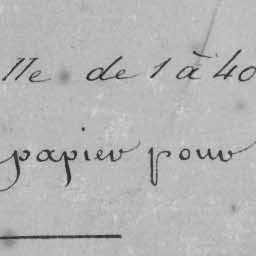 lle de 1 à 40
papier pour